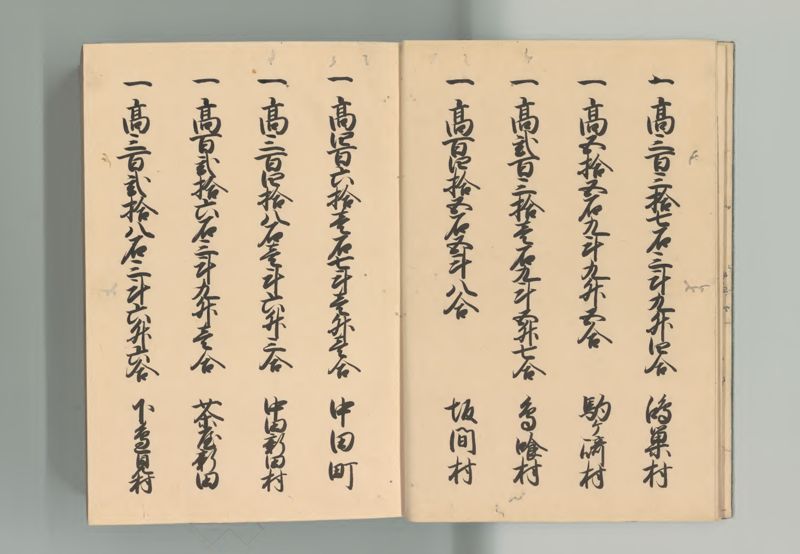 一 高三百三拾七石三斗九升四合 鴻巣村
一 高五拾五石九斗九升五合 駒ヶ崎村
一 高弐百三拾壱石九斗五升七合 鳥喰村
一 高百四拾五石五斗八合 坂間村
一 高四百六拾壱石七斗壱升壱合 中田町
一 高三百四拾八石壱斗六升三合 中田新田村
一 高百弐拾六石三斗九升壱合 茶屋新田
一 高三百弐拾八石三斗六升六合 下邊見村